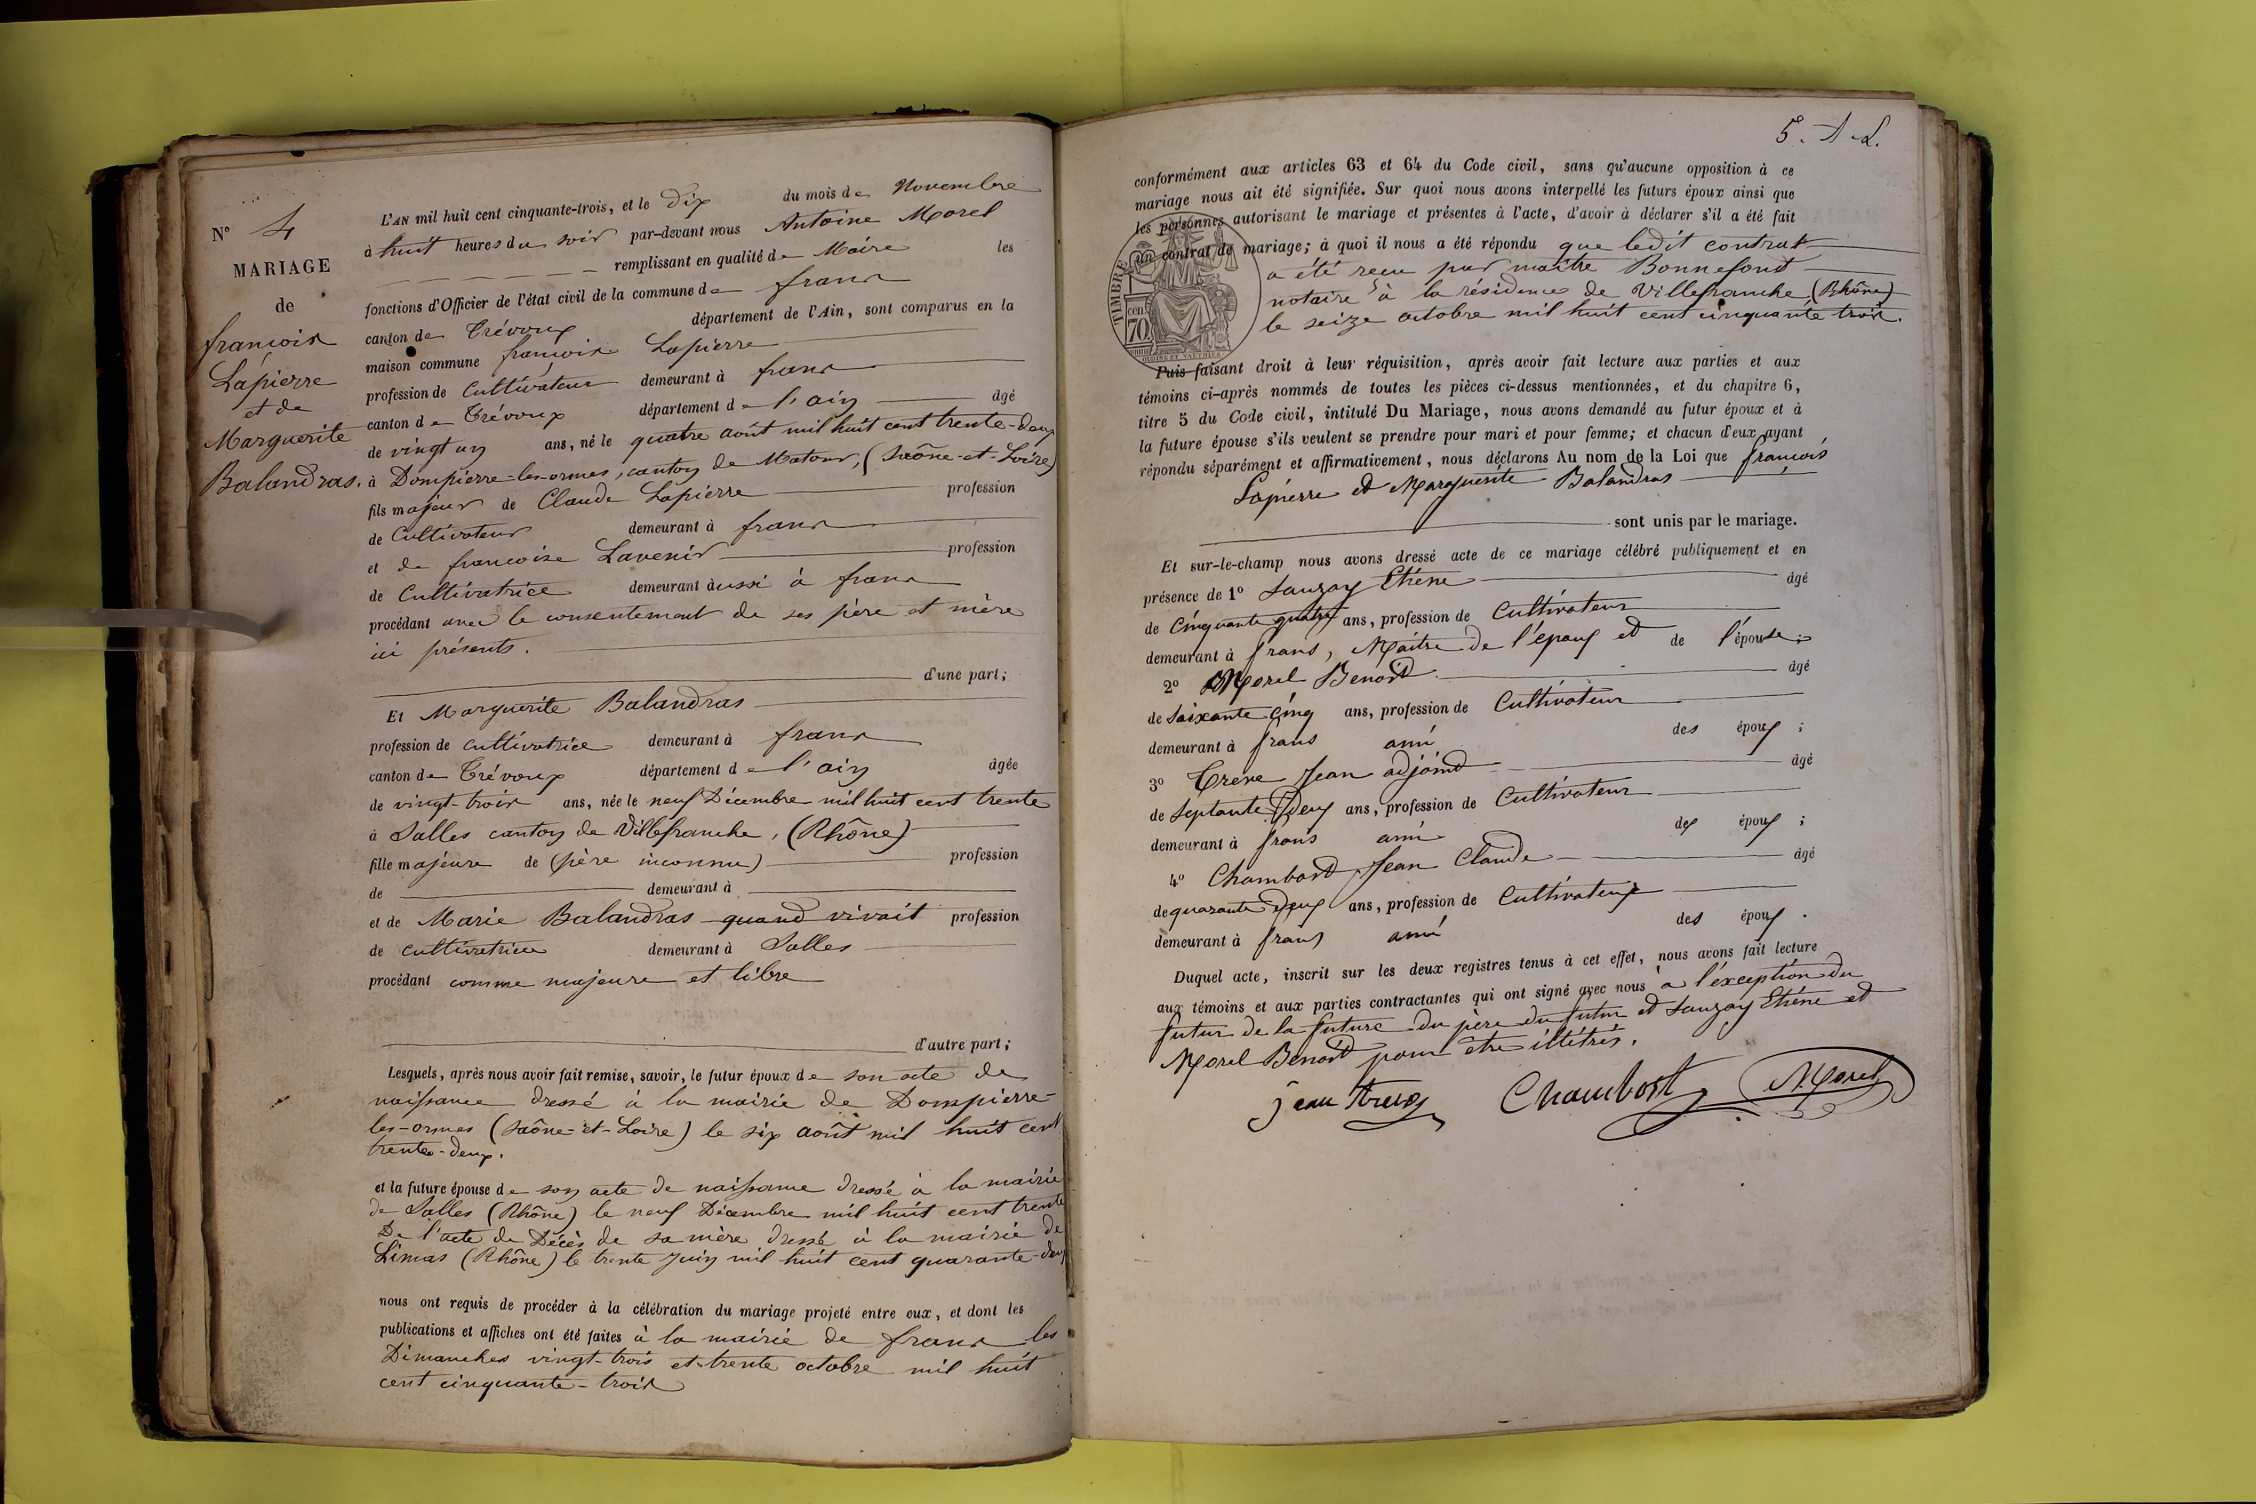 Nº 4
MARIAGE
de
françois
Lapierre
et de
Marguerite
Balandras.
L'AN mil huit cent cinquante-trois, et le dix du mois de Novembre
à huit heures du soir par-devant nous Antoine Morel
remplissant en qualité de Maire les
fonctions d'Officier de l'état civil de la commune de frans
canton de Trévoux département de l'Ain, sont comparus en la
maison commune françois Lapierre
profession de Cultivateur demeurant à frans
canton de Trévoux département de l'ain âgé
de vingt un ans, né le quatre août mil huit cent trente-deux
à Dompierre-les-ormes, canton de Matour, (Saône-et-Loire)
fils majeur de Claude Lapierre profession
de Cultivateur demeurant à frans
et de françoise Lavenir profession
de Cultivatrice demeurant àussi à frans
procédant avec le consentement de ses père et mère
ici présents.
d'une part;
Et Marguerite Balandras
profession de cultivatrice demeurant à frans
canton de Trévoux département de l'ain âgée
de vingt-trois ans, née le neuf Décembre mil huit cent trente
à Salles canton de Villefranche, (Rhône)
fille majeure de (père inconnu) profession
de demeurant à
et de Marie Balandras quand vivait profession
de cultivatrice demeurant à Salles
procédant comme majeure et libre
d'autre part;
Lesquels, après nous avoir fait remise, savoir, le futur époux de son acte de
naissance dressé à la mairie de Dompierre-
les-ormes (Saône-et-Loire) le six août mil huit cent
trente-deux.
et la future épouse de son acte de naissance dressé à la mairie
de Salles (Rhône) le neuf Décembre mil huit cent trente
De l'acte de Décès de sa mère dressé à la mairie de
Limas (Rhône) le trente Juin mil huit cent quarante-deux
nous ont requis de procéder à la célébration du mariage projeté entre eux, et dont les
publications et affiches ont été faites à la mairie de frans les
Dimanches vingt-trois et trente octobre mil huit
cent cinquante-trois
5e. A L.
conformément aux articles 63 et 64 du Code civil, sans qu'aucune opposition à ce
mariage nous ait été signifiée. Sur quoi nous avons interpellé les futurs époux ainsi que
les personnes autorisant le mariage et présentes à l'acte, d'avoir à déclarer s'il a été fait
un contrat de mariage; à quoi il nous a été répondu que ledit contrat
a été reçu par maître Bonnefond
notaire à la résidence de Villefranche (Rhône)
le seize octobre mil huit cent cinquante trois.
TIMBRE
cen.
70
Puis faisant droit à leur réquisition, après avoir fait lecture aux parties et aux
témoins ci-après nommés de toutes les pièces ci-dessus mentionnées, et du chapitre 6,
titre 5 du Code civil, intitulé Du Mariage, nous avons demandé au futur époux et à
la future épouse s'ils veulent se prendre pour mari et pour femme; et chacun d'eux ayant
répondu séparément et affirmativement, nous déclarons Au nom de la Loi que françois
Lapierre et Marguerite Balandras
sont unis par le mariage.
Et sur-le-champ nous avons dressé acte de ce mariage célébré publiquement et en
présence de 1º Sauzay Etiene âgé
de Cinquante quatre ans, profession de Cultivateur
demeurant à frans, Maître de l'époux et de l'épouse;
2º Morel Benoît âgé
de Soixante cinq ans, profession de Cultivateur
demeurant à frans ami des époux;
3º Treve Jean adjoint âgé
de Septante deux ans, profession de Cultivateur
demeurant à frans ami des époux;
4º Chambard Jean Claude âgé
de quarante deux ans, profession de Cultivateur
demeurant à frans ami des époux.
Duquel acte, inscrit sur les deux registres tenus à cet effet, nous avons fait lecture
aux témoins et aux parties contractantes qui ont signé avec nous à l'exception du
futur de la future du père du futur et Sauzay Etiene et
Morel Benoît pour être illétrés.
jean Chambost Morel